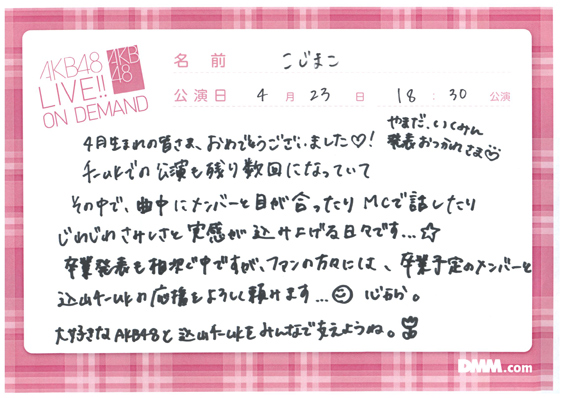 AKB48
LIVE!!
ON DEMAND
AKB
48
名前 こじまこ
公演日 4月23日 18:30公演
やまだ、いくみん
発表おつかれさま
4月生まれの皆さま、おめでとうございました♡!
チームKでの公演も残り数回になっていて
その中で、曲中にメンバーと目が合ったりMCで話したり
じわじわさみしさと実感が込み上げる日々です...☆
卒業発表も相次ぐ中ですが、ファンの方々には、卒業予定のメンバーと
込山チームKの応援をよろしく頼みます...☺ 心から。
大好きなAKB48と込山チームKをみんなで支えようね。
DMM.com